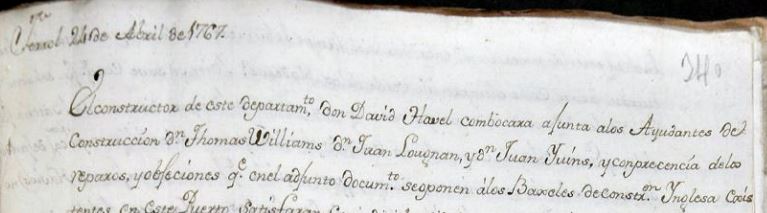 Ferrol 24 de Abril de 1767
340
El constructor de este departam.to don David Howel combocara a junta alos Ayudantes de
Construccion d.n Thomas Williams d.n Juan Lougnan, y d.n Juan Yuins, y con precencia delos
reparos, y objeciones q.e en el adjunto docum.to se ponen álos Baxeles de constr.on Inglesa Exis
tentes en este Puerto satisfaran